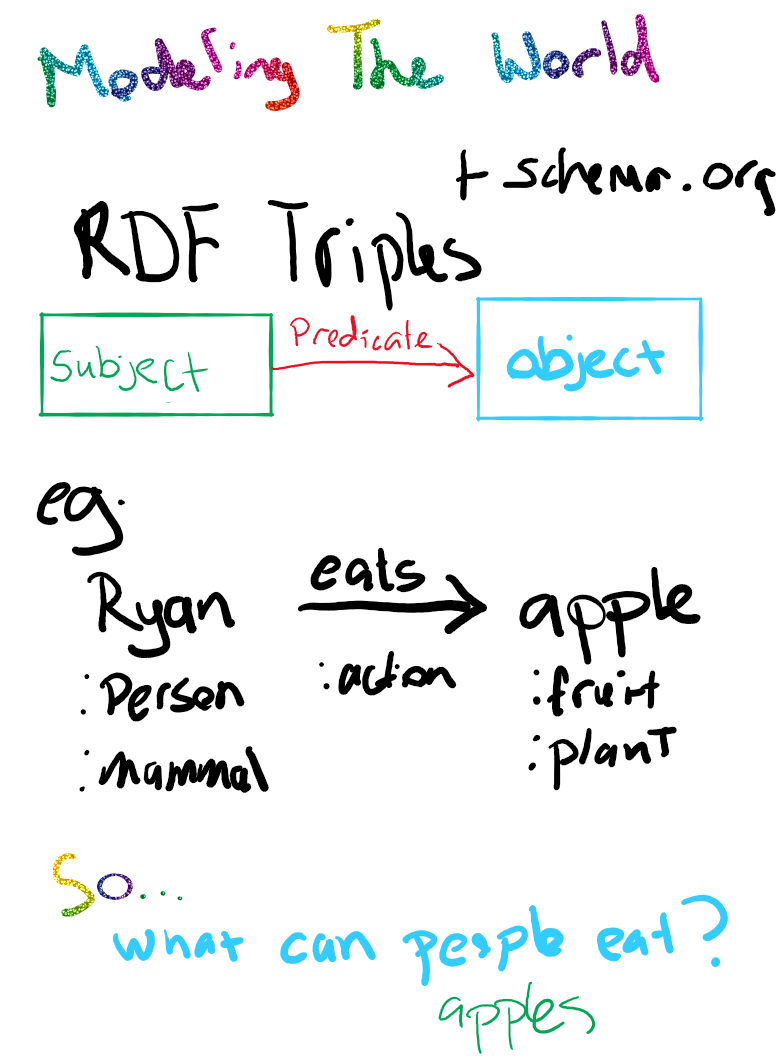 Modeling The World
+ schema.org
RDF Triples
Subject Predicate object
eg.
Ryan eats apple
:Person :action :fruit
:mammal :plant
So...
what can people eat?
apples